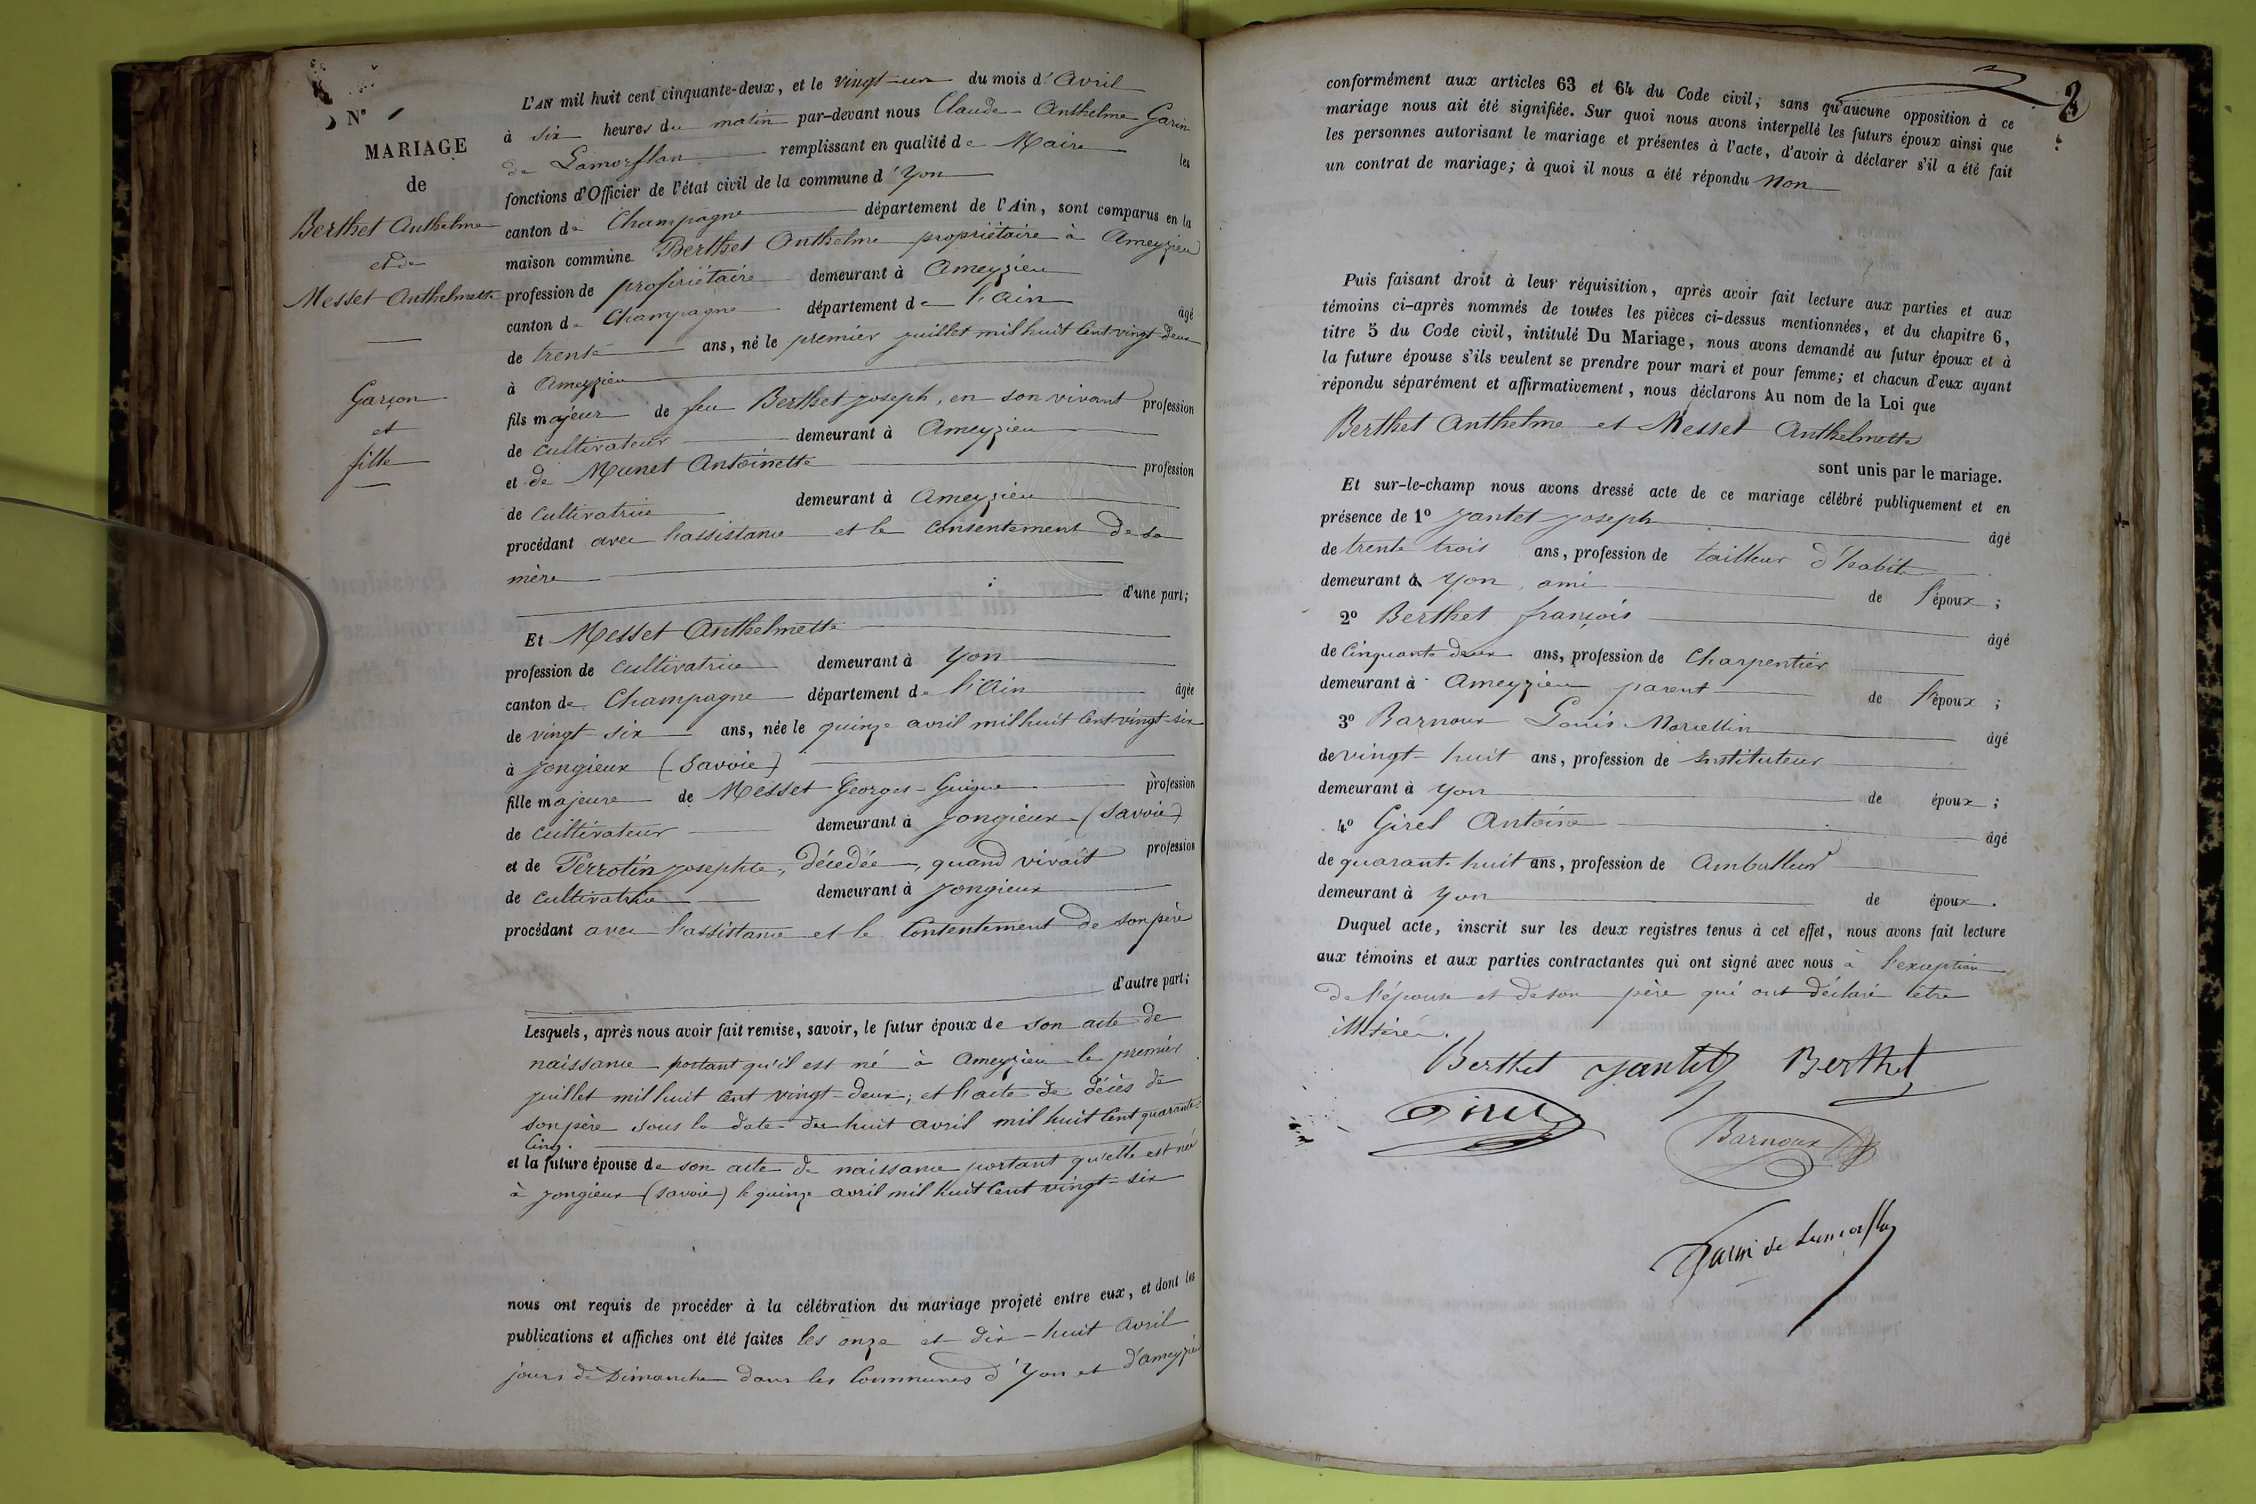 N° 1
MARIAGE
de
Berthet Anthelme
et de
Messet Anthelmette
Garçon
et
fille
L'AN mil huit cent cinquante-deux, et le vingt-un du mois d'Avril
à six heures du matin par-devant nous Claude-Anthelme Garin
de Lamorflan remplissant en qualité de Maire les
fonctions d'Officier de l'état civil de la commune d'Yon
canton de Champagne département de l'Ain, sont comparus en la
maison commune Berthet Anthelme propriétaire à Ameyzieu
profession de propriétaire demeurant à Ameyzieu
canton de Champagne département de l'Ain âgé
de trente ans, né le premier juillet mil huit cent vingt-deux
à Ameyzieu
fils majeur de feu Berthet Joseph, en son vivant profession
de cultivateur demeurant à Ameyzieu
et de Munet Antoinette profession
de cultivatrice demeurant à Ameyzieu
procédant avec l'assistance et le consentement de sa
mère
d'une part;
Et Messet Anthelmette
profession de cultivatrice demeurant à Yon
canton de Champagne département de l'Ain âgée
de vingt six ans, née le quinze avril mil huit cent vingt-six
à Jongieux (Savoie)
fille majeure de Messet Georges-Guigue profession
de cultivateur demeurant à Jongieux (Savoie)
et de Perrotin Josephte, décedée, quand vivait profession
de cultivatrice demeurant à Jongieux
procédant avec l'assistance et le consentement de son père
d'autre part;
Lesquels, après nous avoir fait remise, savoir, le futur époux de son acte de
naissance portant qu'il est né à Ameyzieu le premier
juillet mil huit cent vingt-deux; et l'acte de décès de
son père sous la date du huit avril mil huit cent quarante-
cinq.
et la future épouse de son acte de naissance portant qu'elle est né
à Jongieux (Savoie) le quinze avril mil huit cent vingt-six
nous ont requis de procéder à la célébration du mariage projeté entre eux, et dont les
publications et affiches ont été faites les onze et dix-huit avril
jours de Dimanche dans les Communes d'Yon et d'ameyzieu
2
conformément aux articles 63 et 64 du Code civil, sans qu'aucune opposition à ce
mariage nous ait été signifiée. Sur quoi nous avons interpellé les futurs époux ainsi que
les personnes autorisant le mariage et présentes à l'acte, d'avoir à déclarer s'il a été fait
un contrat de mariage; à quoi il nous a été répondu Non
Puis faisant droit à leur réquisition, après avoir fait lecture aux parties et aux
témoins ci-après nommés de toutes les pièces ci-dessus mentionnées, et du chapitre 6,
titre 5 du Code civil, intitulé Du Mariage, nous avons demandé au futur époux et à
la future épouse s'ils veulent se prendre pour mari et pour femme; et chacun d'eux ayant
répondu séparément et affirmativement, nous déclarons Au nom de la Loi que
Berthet Anthelme et Messet Anthelmette
sont unis par le mariage.
Et sur-le-champ nous avons dressé acte de ce mariage célébré publiquement et en
présence de 1° Jantet Joseph âgé
de trente trois ans, profession de tailleur d'habit
demeurant à Yon, ami de l'époux;
2° Berthet françois âgé
de Cinquante deux ans, profession de Charpentier
demeurant à Ameyzieu parent de l'époux;
3° Barnoux Louis-Marcellin âgé
de vingt-huit ans, profession de Instituteur
demeurant à Yon de époux;
4° Girel Antoine âgé
de quarante-huit ans, profession de
demeurant à Yon de époux.
Duquel acte, inscrit sur les deux registres tenus à cet effet, nous avons fait lecture
aux témoins et aux parties contractantes qui ont signé avec nous à l'exception
de l'épouse et de son père qui ont déclaré l'être
illitéré.
Berthet Jantet Berthet
Girel Barnoux
Garin de Lamorflan